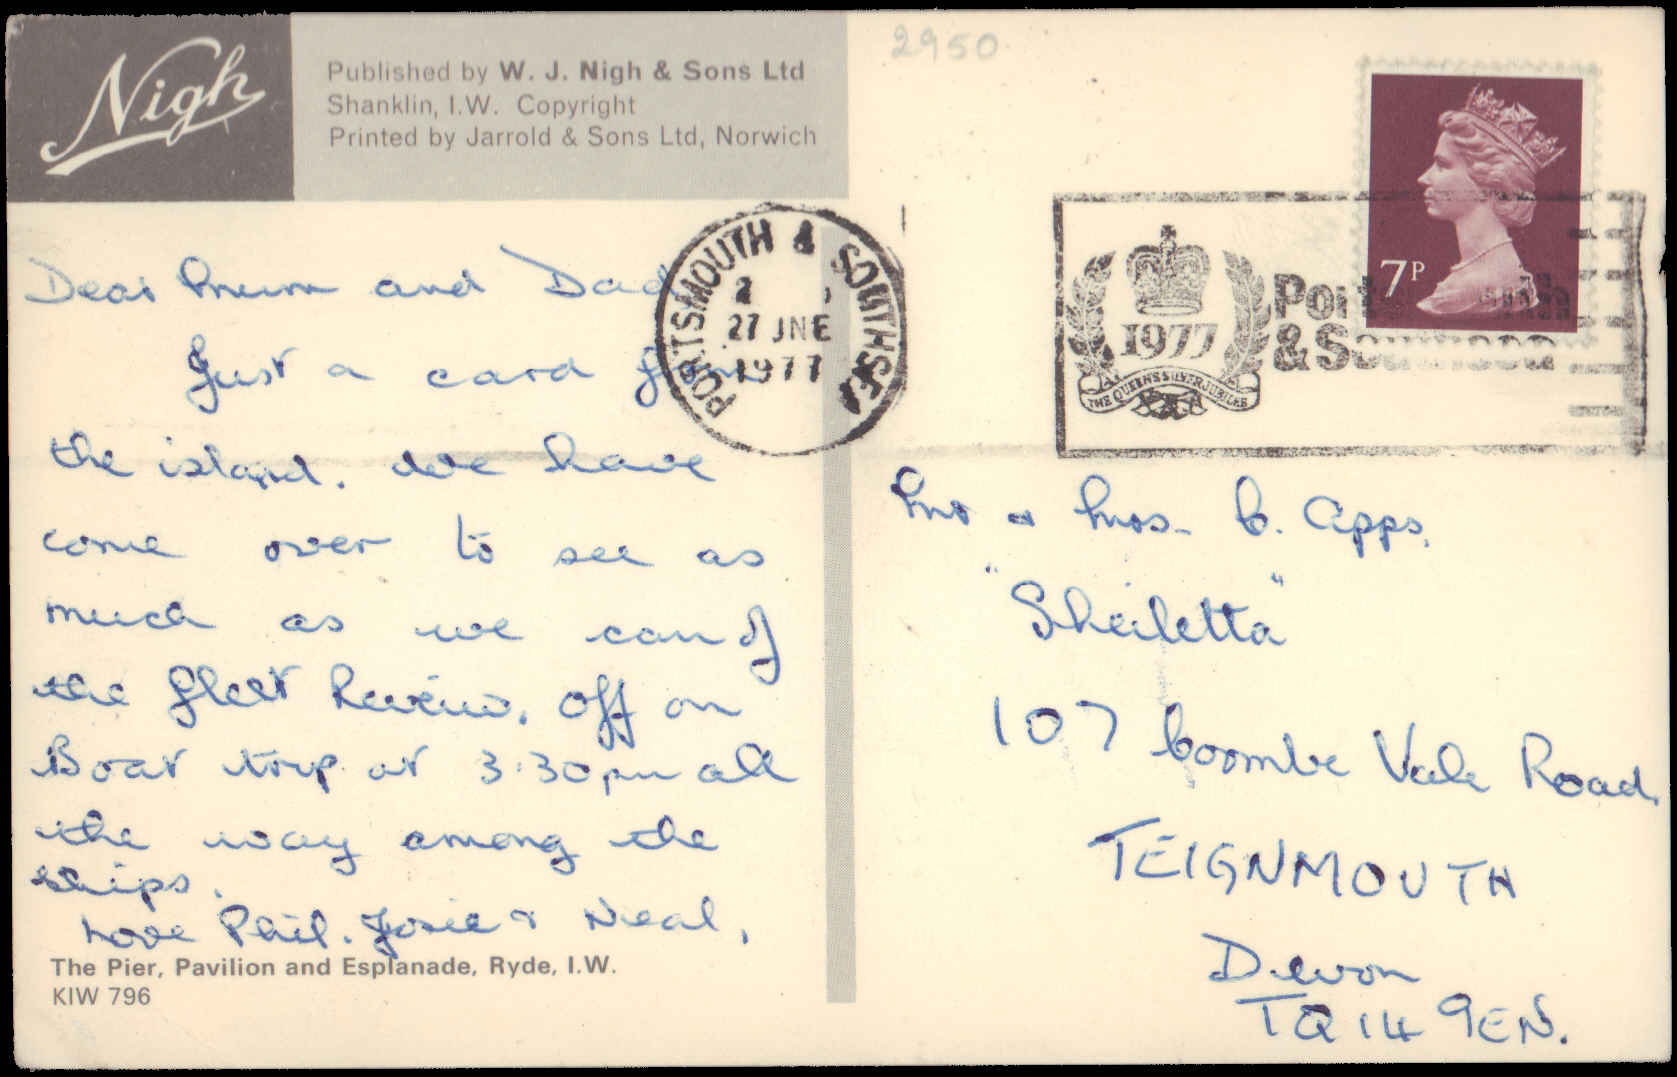 Nigh
Published by W. J. Nigh & Sons Ltd
Shanklin, I.W. Copyright
Printed by Jarrold & Sons Ltd, Norwich
2950
7P
PORTSMOUTH & SOUTHSEA
27 JNE
1977
1977
THE QUEEN'S SILVER JUBILEE
& Southsea
Dear Mum and Dad
Just a card from
the island. We have
come over to see as
much as we can of
the fleet Review. Off on
Boat trip at 3.30pm all
the way among the
ships.
Love Phil. Josie & Neal.
The Pier, Pavilion and Esplanade, Ryde, I.W.
KIW 796
Mr & Mrs. C. Apps.
"Sheiletta"
107 Coombe Vale Road.
TEIGNMOUTH
Devon
TQ14 9EN.